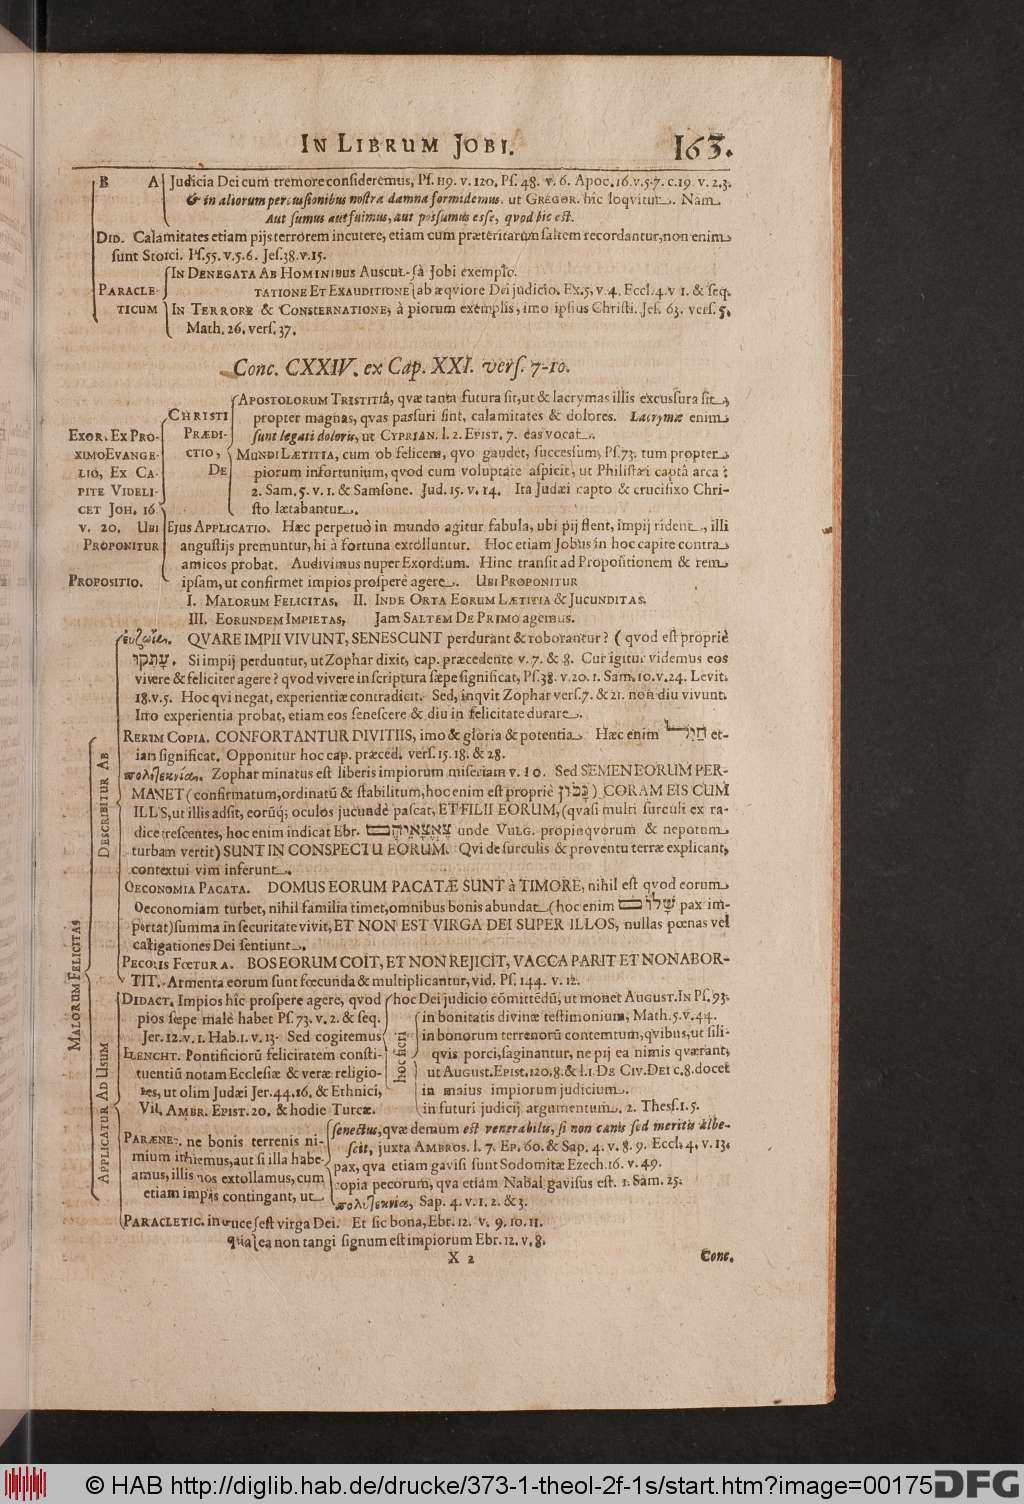 IN LIBRUM JOBI. 163.
B A Judicia Dei cum tremore consideremus, Ps. 119. v. 120. Ps. 48. v. 6. Apoc. 16. v. 5. 7. c. 19. v. 2. 3.
& in aliorum percussionibus nostra damna formidemus. ut GREGOR. hic loqvitur. Nam
Aut sumus aut fuimus, aut possumus esse, qvod hic est.
DID. Calamitates etiam pijs terrorem incutere, etiam cum præteritarum saltem recordantur, non enim
sunt Stoici. Ps. 55. v. 5. 6. Jes. 38. v. 15.
IN DENEGATA AB HOMINIBUS AUSCUL- sà Jobi exemplo.
PARACLE- TATIONE ET EXAUDITIONE ab æqviore Dei judicio. Ex. 5, v. 4. Eccl. 4. v 1. & seq.
TICUM IN TERRORE & CONSTERNATIONE, à piorum exemplis, imo ipsius Christi. Jes. 63. vers. 5.
Math. 26. vers. 37.
Conc. CXXIV. ex Cap. XXI. vers. 7-10.
APOSTOLORUM TRISTITIÂ, qvæ tanta futura sit, ut & lacrymas illis excussura sit,
CHRISTI propter magnas, qvas passuri sint, calamitates & dolores. Lacrymæ enim
EXOR. EX PRO- PRÆDI- sunt legati doloris, ut CYPRIAN. l. 2. EPIST. 7. eas vocat.
XIMO EVANGE- CTIO, MUNDI LÆTITIA, cum ob felicem, qvo gaudet, successum, Ps. 73. tum propter
LIO, EX CA- DE piorum infortunium, qvod cum voluptate aspicit, ut Philistæi captâ arca :
PITE VIDELI- 2. Sam. 5. v. 1. & Samsone. Jud. 15. v. 14. Ita Judæi capto & crucifixo Chri-
CET JOH. 16 sto lætabantur.
v. 20. UBI EJUS APPLICATIO. Hæc perpetuò in mundo agitur fabula, ubi pij flent, impij rident, illi
PROPONITUR angustijs premuntur, hi à fortuna extolluntur. Hoc etiam Jobus in hoc capite contra
amicos probat. Audivimus nuper Exordium. Hinc transit ad Propositionem & rem
PROPOSITIO. ipsam, ut confirmet impios prosperè agere. UBI PROPONITUR
I. MALORUM FELICITAS, II. INDE ORTA EORUM LÆTITIA & JUCUNDITAS.
III. EORUNDEM IMPIETAS, Jam SALTEM DE PRIMO agemus.
εὐζωΐα. QVARE IMPII VIVUNT, SENESCUNT perdurant & roborantur? ( qvod est propriè
עָתְקוּ. Si impij perduntur, ut Zophar dixit, cap. præcedente v. 7. & 8. Cur igitur videmus eos
vivere & feliciter agere? qvod vivere in scriptura sæpe significat, Ps. 38. v. 20. 1. Sam. 10. v. 24. Levit.
18. v. 5. Hoc qvi negat, experientiæ contradicit. Sed, inqvit Zophar vers. 7. & 21. non diu vivunt.
Imo experientia probat, etiam eos senescere & diu in felicitate durare.
RERUM COPIA. CONFORTANTUR DIVITIIS, imo & gloria & potentia Hæc enim חַיִל et-
iam significat. Opponitur hoc cap. præced. vers. 15. 18. & 28.
πολυτεκνία. Zophar minatus est liberis impiorum miseriam v. 10. Sed SEMEN EORUM PER-
MANET (confirmatum, ordinatū & stabilitum, hoc enim est propriè נָכוֹן) CORAM EIS CUM
ILLS, ut illis adsit, eorūq; oculos jucundè pascat, ET FILII EORUM, (qvasi multi surculi ex ra-
dice crescentes, hoc enim indicat Ebr. צֶאֱצָאֵיהֶם unde VULG. propinqvorum & nepotum
turbam vertit) SUNT IN CONSPECTU EORUM. Qvi de surculis & proventu terræ explicant,
contextui vim inferunt.
OECONOMIA PACATA. DOMUS EORUM PACATÆ SUNT à TIMORE, nihil est qvod eorum
Oeconomiam turbet, nihil familia timet, omnibus bonis abundat (hoc enim שָׁלוֹם pax im-
portat) summa in securitate vivit, ET NON EST VIRGA DEI SUPER ILLOS, nullas pœnas vel
castigationes Dei sentiunt.
PECORIS FŒTURA. BOS EORUM COIT, ET NON REJICIT, VACCA PARIT ET NON ABOR-
TIT. Armenta eorum sunt fœcunda & multiplicantur, vid. Ps. 144. v. 12.
MALORUM FELICITAS
DESCRIBITUR AB
APPLICATUR AD USUM
DIDACT. Impios hîc prospere agere, qvod hoc Dei judicio cōmittēdū, ut monet AUGUST. IN Ps. 93.
pios sæpe malè habet Ps. 73. v. 2. & seq. in bonitatis divinæ testimonium, Math. 5. v. 44.
Jer. 12. v. 1. Hab. 1. v. 13. Sed cogitemus in bonorum terrenorū contemtum, qvibus, ut sili-
hoc fieri
ELENCHT. Pontificiorū felicitatem consti- qvis porci, saginantur, ne pij ea nimis qværant,
tuentiū notam Ecclesiæ & veræ religio- ut AUGUST. EPIST. 120. 8. & l. 1. DE CIV. DEI c. 8. docet
nes, ut olim Judæi Jer. 44. 16. & Ethnici, in maius impiorum judicium.
Vit. AMBR. EPIST. 20. & hodie Turcæ. in futuri judicij argumentum. 2. Thess. 1. 5.
senectus, qvæ demum est venerabilis, si non canis sed meritis albe-
PARÆNET. ne bonis terrenis ni- scit, juxta AMBROS. l. 7. EP. 60. & Sap. 4. v. 8. 9. Eccl. 4. v. 13.
mium inhiemus, aut si illa habe- pax, qva etiam gavisi sunt Sodomitæ Ezech. 16. v. 49.
amus, illis nos extollamus, cum copia pecorum, qva etiam Nabal gavisus est. 1. Sam. 25.
etiam impijs contingant, ut πολυτεκνία, Sap. 4. v. 1. 2. & 3.
PARACLETIC. in cruce est virga Dei. Et sic bona, Ebr. 12. v. 9. 10. 11.
qvia ea non tangi signum est impiorum Ebr. 12. v. 8.
X 2 Conc.
© HAB http://diglib.hab.de/drucke/373-1-theol-2f-1s/start.htm?image=00175 DFG